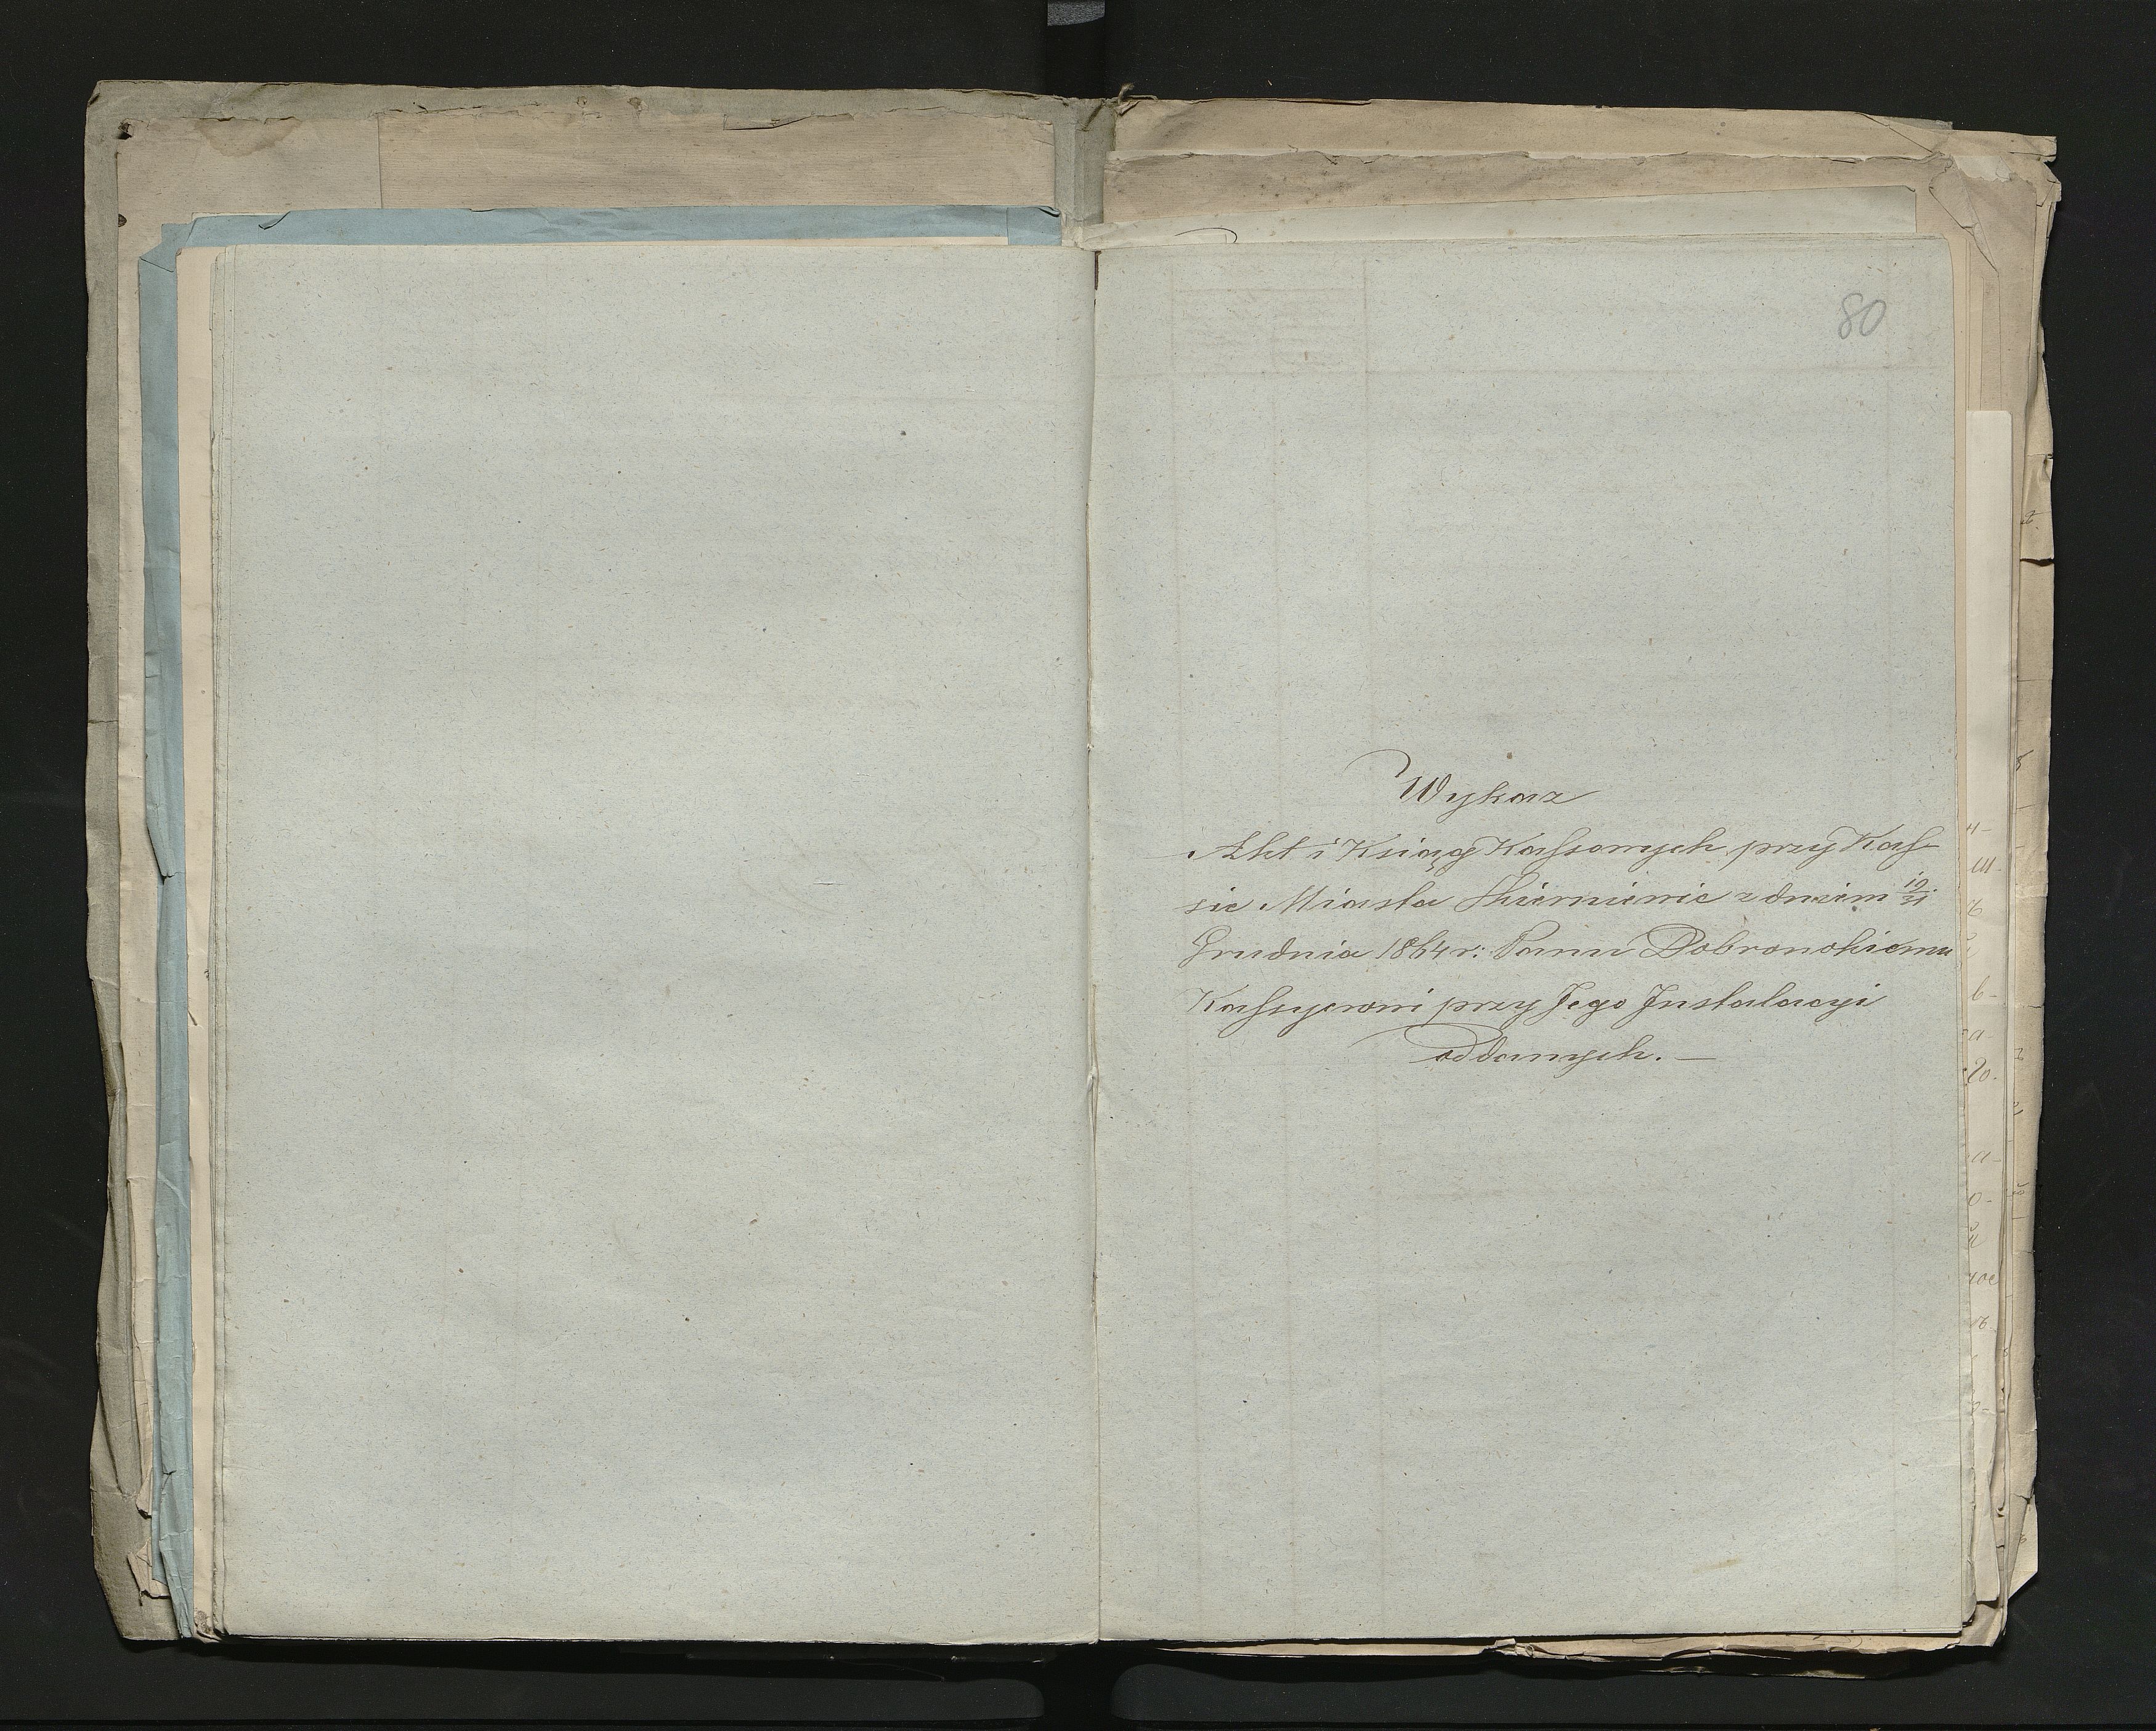 80
Wykaz
Akt i Ksiąg Kassowych przy Kas-
sie Miasta Skierniewic z dniem 19/31
Grudnia 1864 r: Panu Dobronokiemu
Kassyerowi przy Jego Instalacyi
oddanych. —